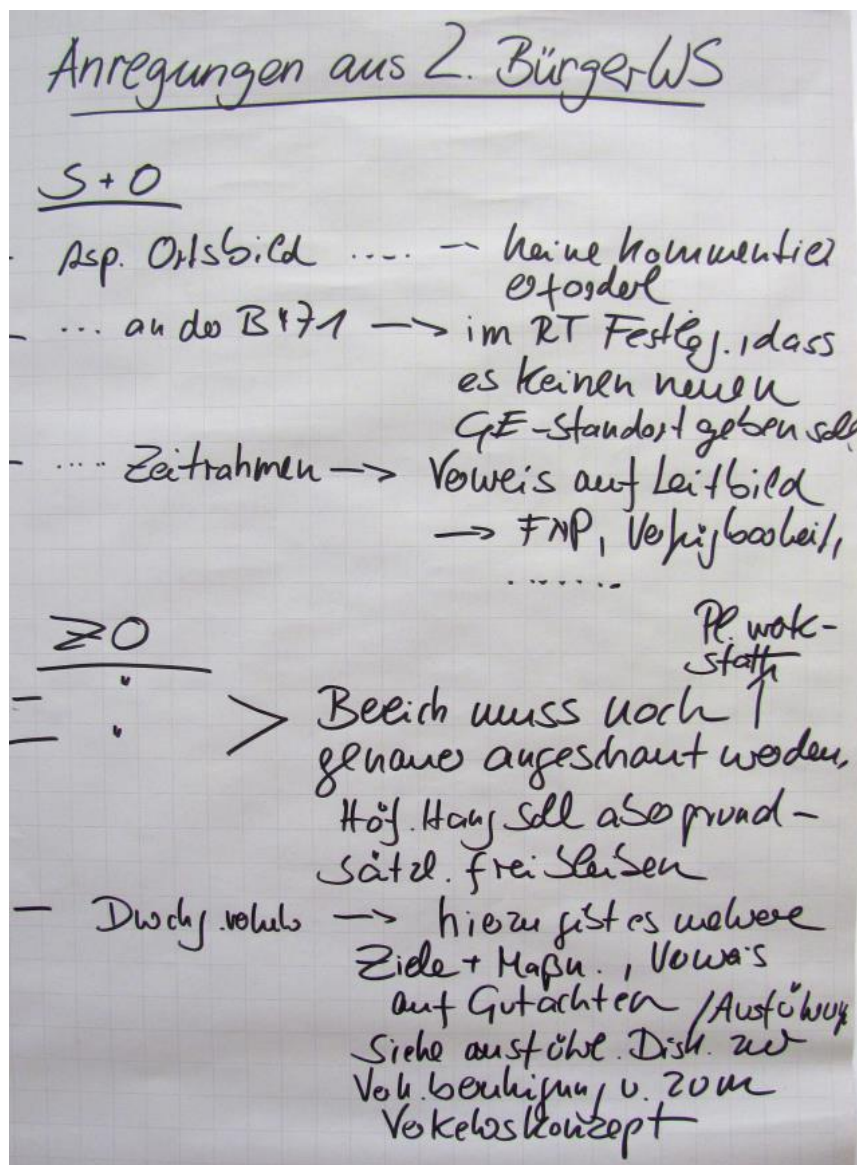 Anregungen aus 2. BürgerWS
S + O
- Asp. Ortsbild ..... — keine Kommentier
erforderl
- ... an der B471 → im RT Festleg., dass
es keinen neuen
GE-Standort geben soll
- .... Zeitrahmen → Verweis auf Leitbild
→ FNP, Verfügbarkeit,
.......
ZO
Pl. werk-
statt
↑
- "
- " > Bereich muss noch
genauer angeschaut werden,
Höf. Hang soll aber grund-
sätzl. frei bleiben
- Durchg.verkehr → hierzu gibt es mehrere
Ziele + Maßn., Verweis
auf Gutachten / Ausführung
Siehe ausführl. Disk. zur
Verk.beruhigung u. zum
Verkehrskonzept